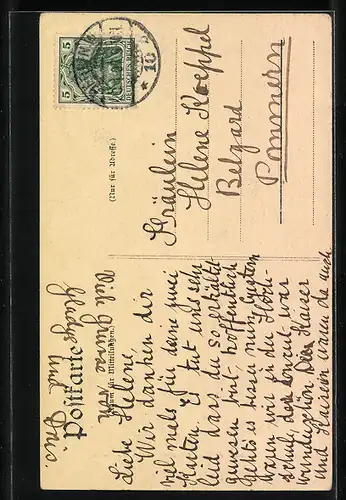 Postkarte
(Raum für Mitteilungen.)
(Nur für Adresse.)
5 5
DEUTSCHES REICH
10
Fräulein
Helene Koeppel
Belgard
Pommern
Liebe Helene,
Wir danken dir
viel mals für deine zwei
Karten. Es tut uns sehr
leid dass du so erkältet
gewesen bist. hoffentlich
geht's besser mit
waren wir in der Hoch-
schule, das war
wunderschön Der Kaiser
und Kaiserin waren da auch
Viele Grüsse von
Gladys und